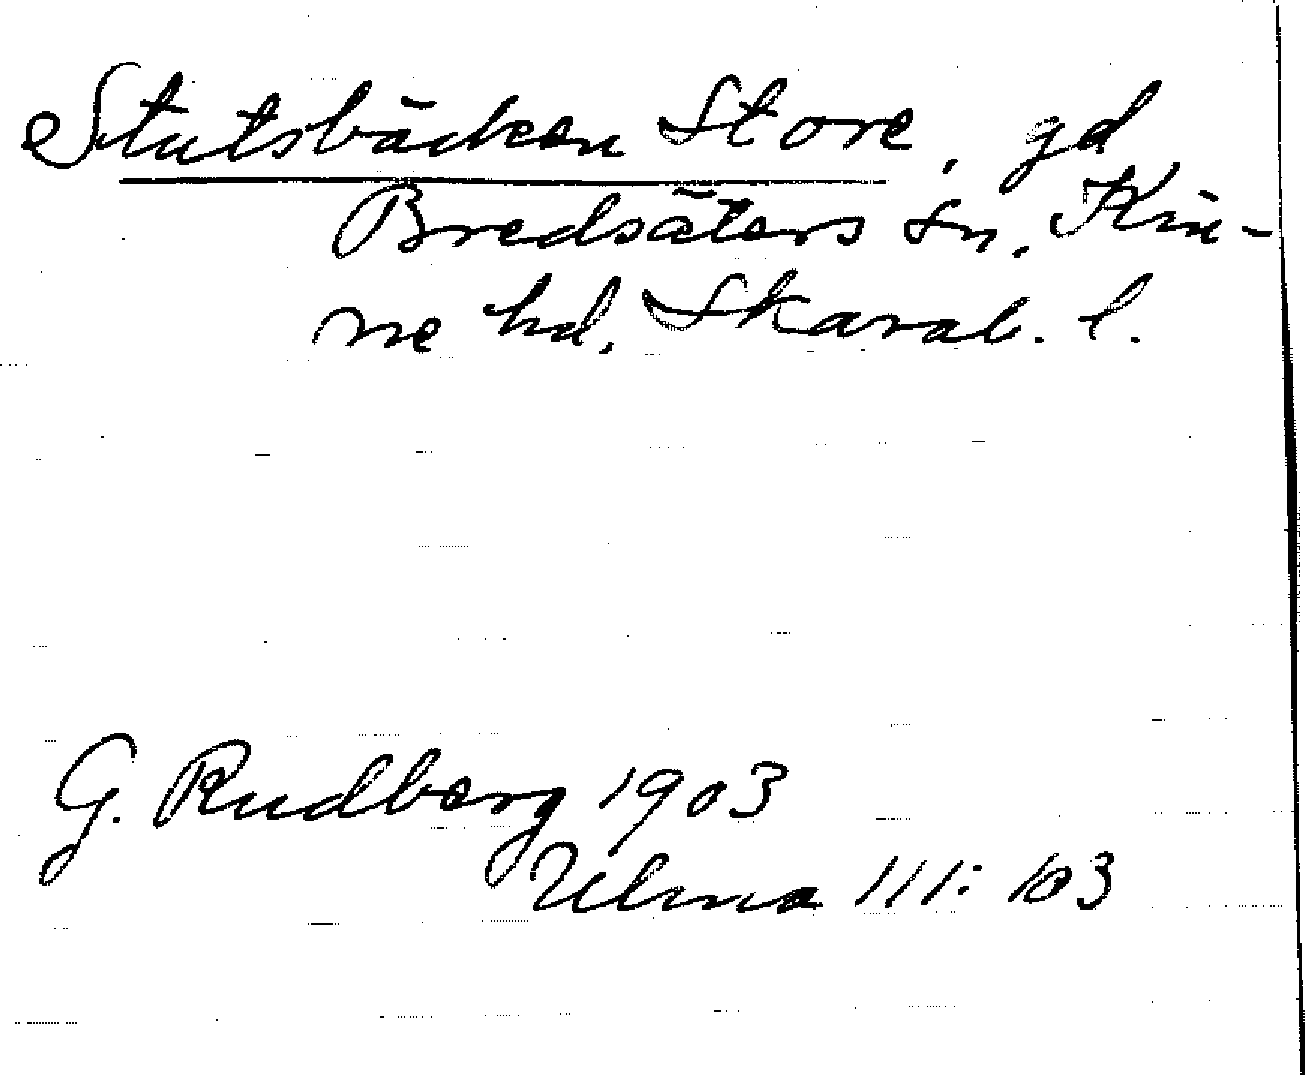 Stutsbäcken Store, gd
Bredsäters sn. Kin-
ne hd, Skarab. l.
G. Rudberg 1903
Ulma 111: 103